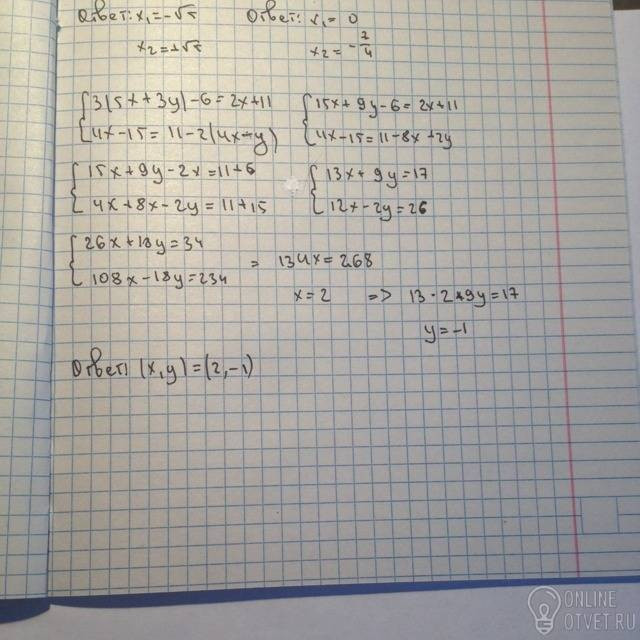 Ответ: x₁=-√5 Ответ: x₁= 0
x₂=+√5 x₂= -7/4
{3(5x+3y)-6=2x+11 {15x+9y-6=2x+11
{4x-15=11-2(4x-y) {4x-15=11-8x+2y
{15x+9y-2x=11+6 {13x+9y=17
{4x+8x-2y=11+15 {12x-2y=26
{26x+18y=34
{108x-18y=234
= 134x=268
x=2 => 13·2+9y=17
y=-1
Ответ: (x,y)=(2,-1)
ONLINE
OTVET.RU